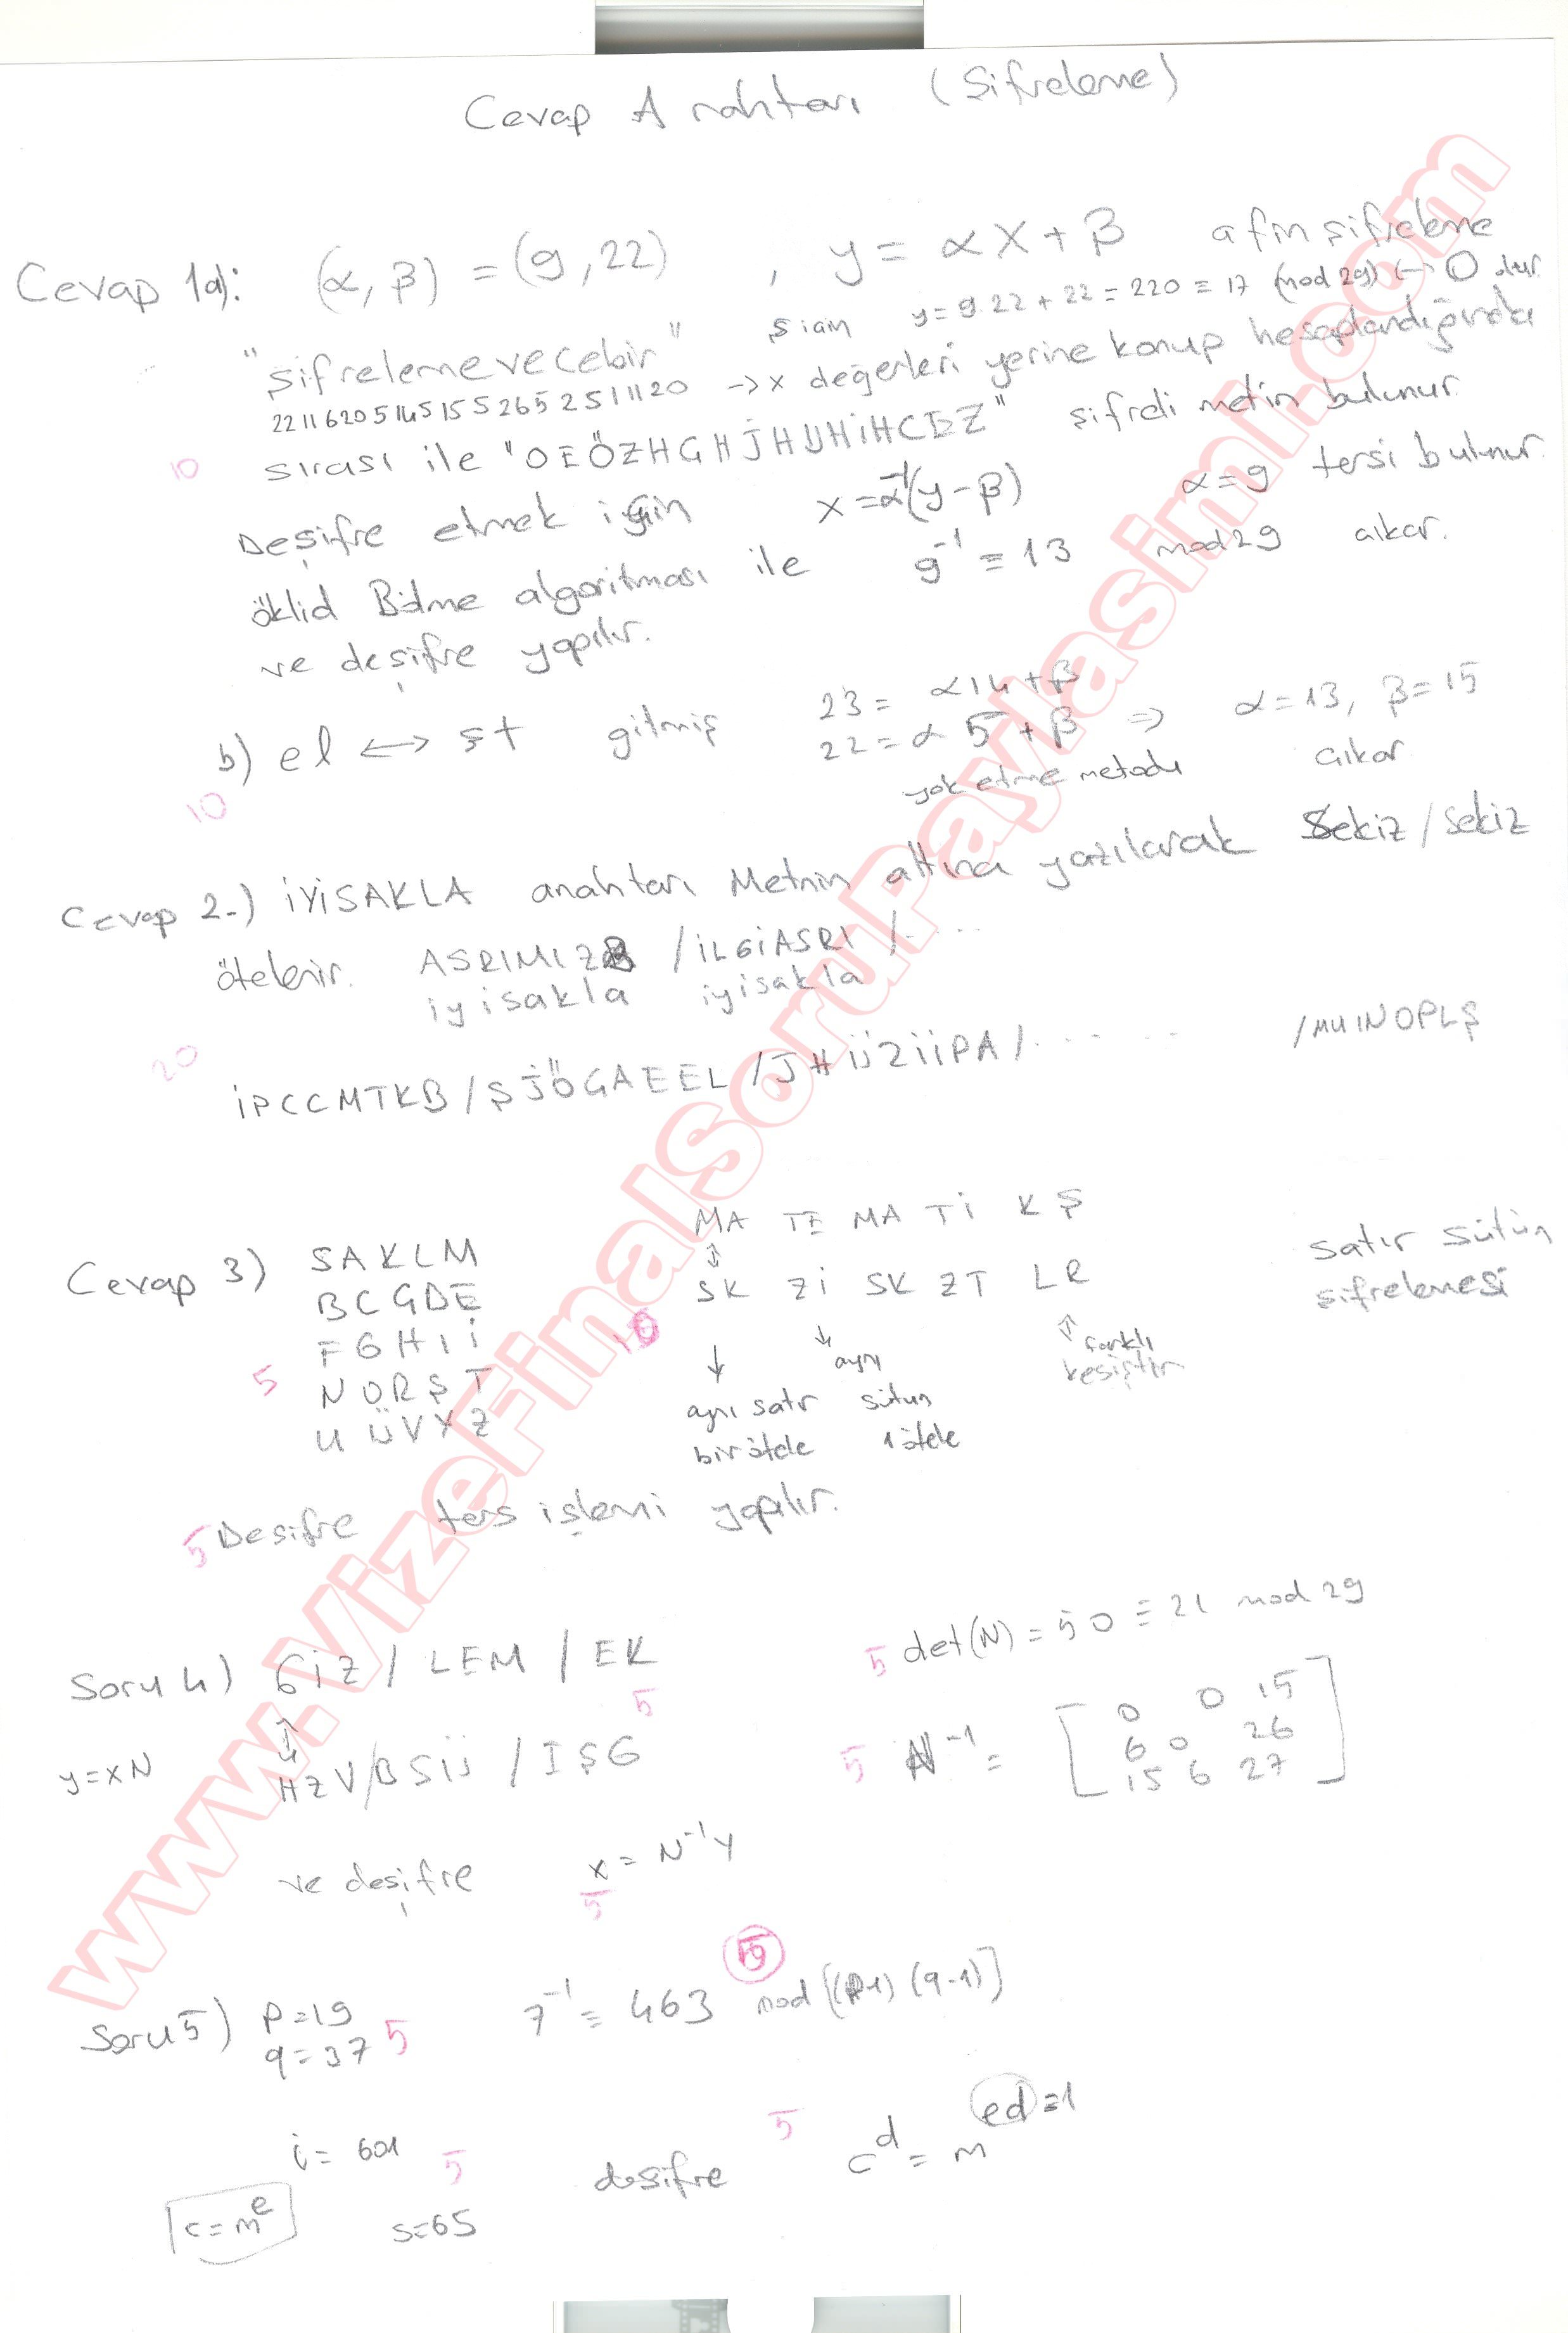 Cevap Anahtarı (Şifreleme)
Cevap 1a): (α, β) = (9, 22) , y = αX + β afin şifreleme
"şifrelemevecebir" ş için y = 9.22 + 22 = 220 ≡ 17 (mod 29) ↔ O dur.
22 11 6 20 5 14 5 15 5 26 5 2 5 1 11 20 → x değerleri yerine konup hesaplandığında
10 sırası ile "OEÖZHGHJHUHİHCEZ" şifreli metin bulunur.
Deşifre etmek için x = α⁻¹(y - β) α = 9 tersi bulunur.
öklid Bölme algoritması ile 9⁻¹ ≡ 13 mod 29 çıkar.
ve deşifre yapılır.
b) el ↔ şt gitmiş 23 = α14 + β
22 = α 5 + β ⇒ α = 13, β = 15
10 yok etme metodu çıkar.
Cevap 2-) İYİSAKLA anahtarı Metnin altına yazılarak Sekiz / sekiz
ötelenir. ASRIMIZB / İLGİASRI / ....
iyisakla iyisakla
20 İPCCMTKB / ŞJÖGAEEL / JHÜZİİPA / ..... / MUINOPLŞ
Cevap 3) SAKLM MA TE MA Tİ K Ş
BCÇDE SK Zİ SK ZT LR satır sütun
FGHIİ 10 şifrelemesi
5 NORŞT ↓ aynı satır bir ötele ↓ aynı sütun 1 ötele ↑ farklı kesiştir
UÜVYZ
5 Deşifre ters işlemi yapılır.
Soru 4) GİZ / LEM / EK 5 det(N) = 50 ≡ 21 mod 29
5
y = xN HZV / BSÜ / IŞG 5 N⁻¹ = [ 0 0 15
6 0 26
15 6 27 ]
ve deşifre x = N⁻¹Y
5
Soru 5) p = 19 5 7⁻¹ ≡ 463 5 mod [(p-1) (q-1)]
q = 37
i = 601 5 deşifre 5 c^d = m^ed ≡ 1
c = m^e s = 65
www.VizeFinalSoruPaylasimi.com